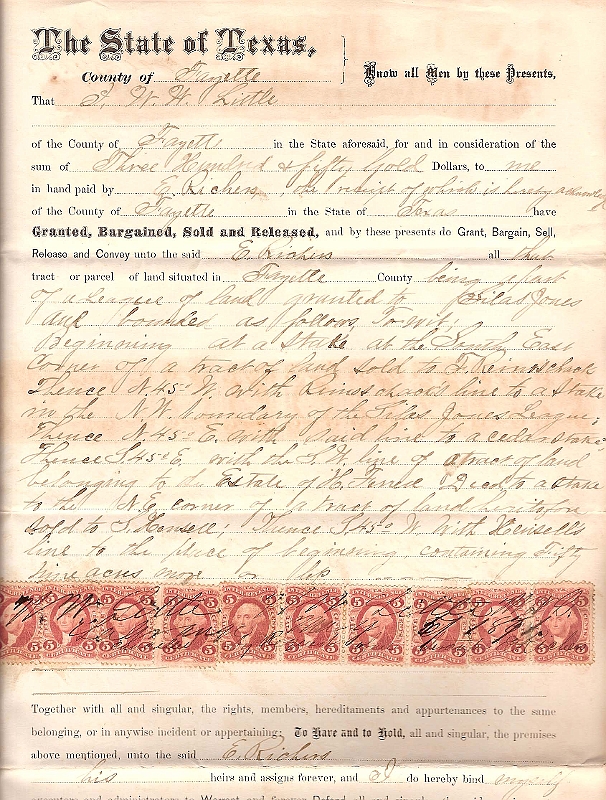 The State of Texas,
County of Fayette
Know all Men by these Presents,
That I, W. W. Little
of the County of Fayette in the State aforesaid, for and in consideration of the
sum of Three Hundred & fifty Gold Dollars, to me
in hand paid by E. Richers the receipt of which is hereby
of the County of Fayette in the State of Texas have
Granted, Bargained, Sold and Released, and by these presents do Grant, Bargain, Sell,
Release and Convey unto the said E. Richers all that
tract or parcel of land situated in Fayette County being a part
of a league of land granted to Silas Jones
and bounded as follows, To wit;
Beginning at a Stake at the South East
Corner of a tract of land sold to
Thence N. 45° W. with line to a Stake
in the N.W. boundery of the Silas Jones League;
Thence N. 45° E. with said line to a cedar stake
Thence S. 45° E. with the S.W. line of a tract of land
belonging to the Estate of Decd, to a stake
to the N.E. corner of a tract of land
sold to Hensell; Thence S. 45° W. with Hensell's
line to the place of beginning containing
nine acres more or less
5 5
Together with all and singular, the rights, members, hereditaments and appurtenances to the same
belonging, or in anywise incident or appertaining; To Have and to Hold, all and singular, the premises
above mentioned, unto the said E. Richers
his heirs and assigns forever, and I do hereby bind myself
executors and administrators to Warrant and forever Defend all and singular the said